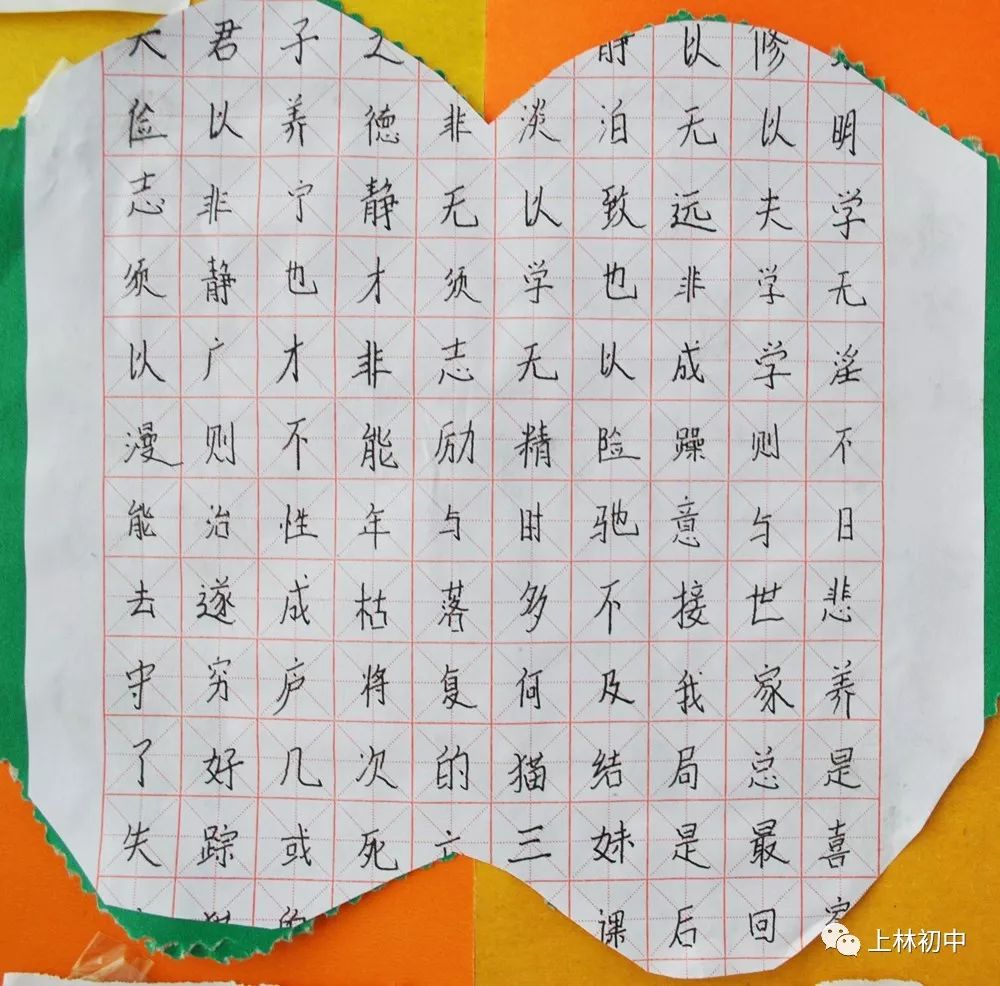 夫君子之静以修
俭以养德非淡泊无以明
志非宁静无以致远夫学
须静也才须学也非学无
以广才非志无以成学淫
漫则不能励精险躁则不
能治性年与时驰意与日
去遂成枯落多不接世悲
守穷庐将复何及我家养
了好几次的猫结局总是
失踪或死亡三妹是最喜
的课后回
上林初中